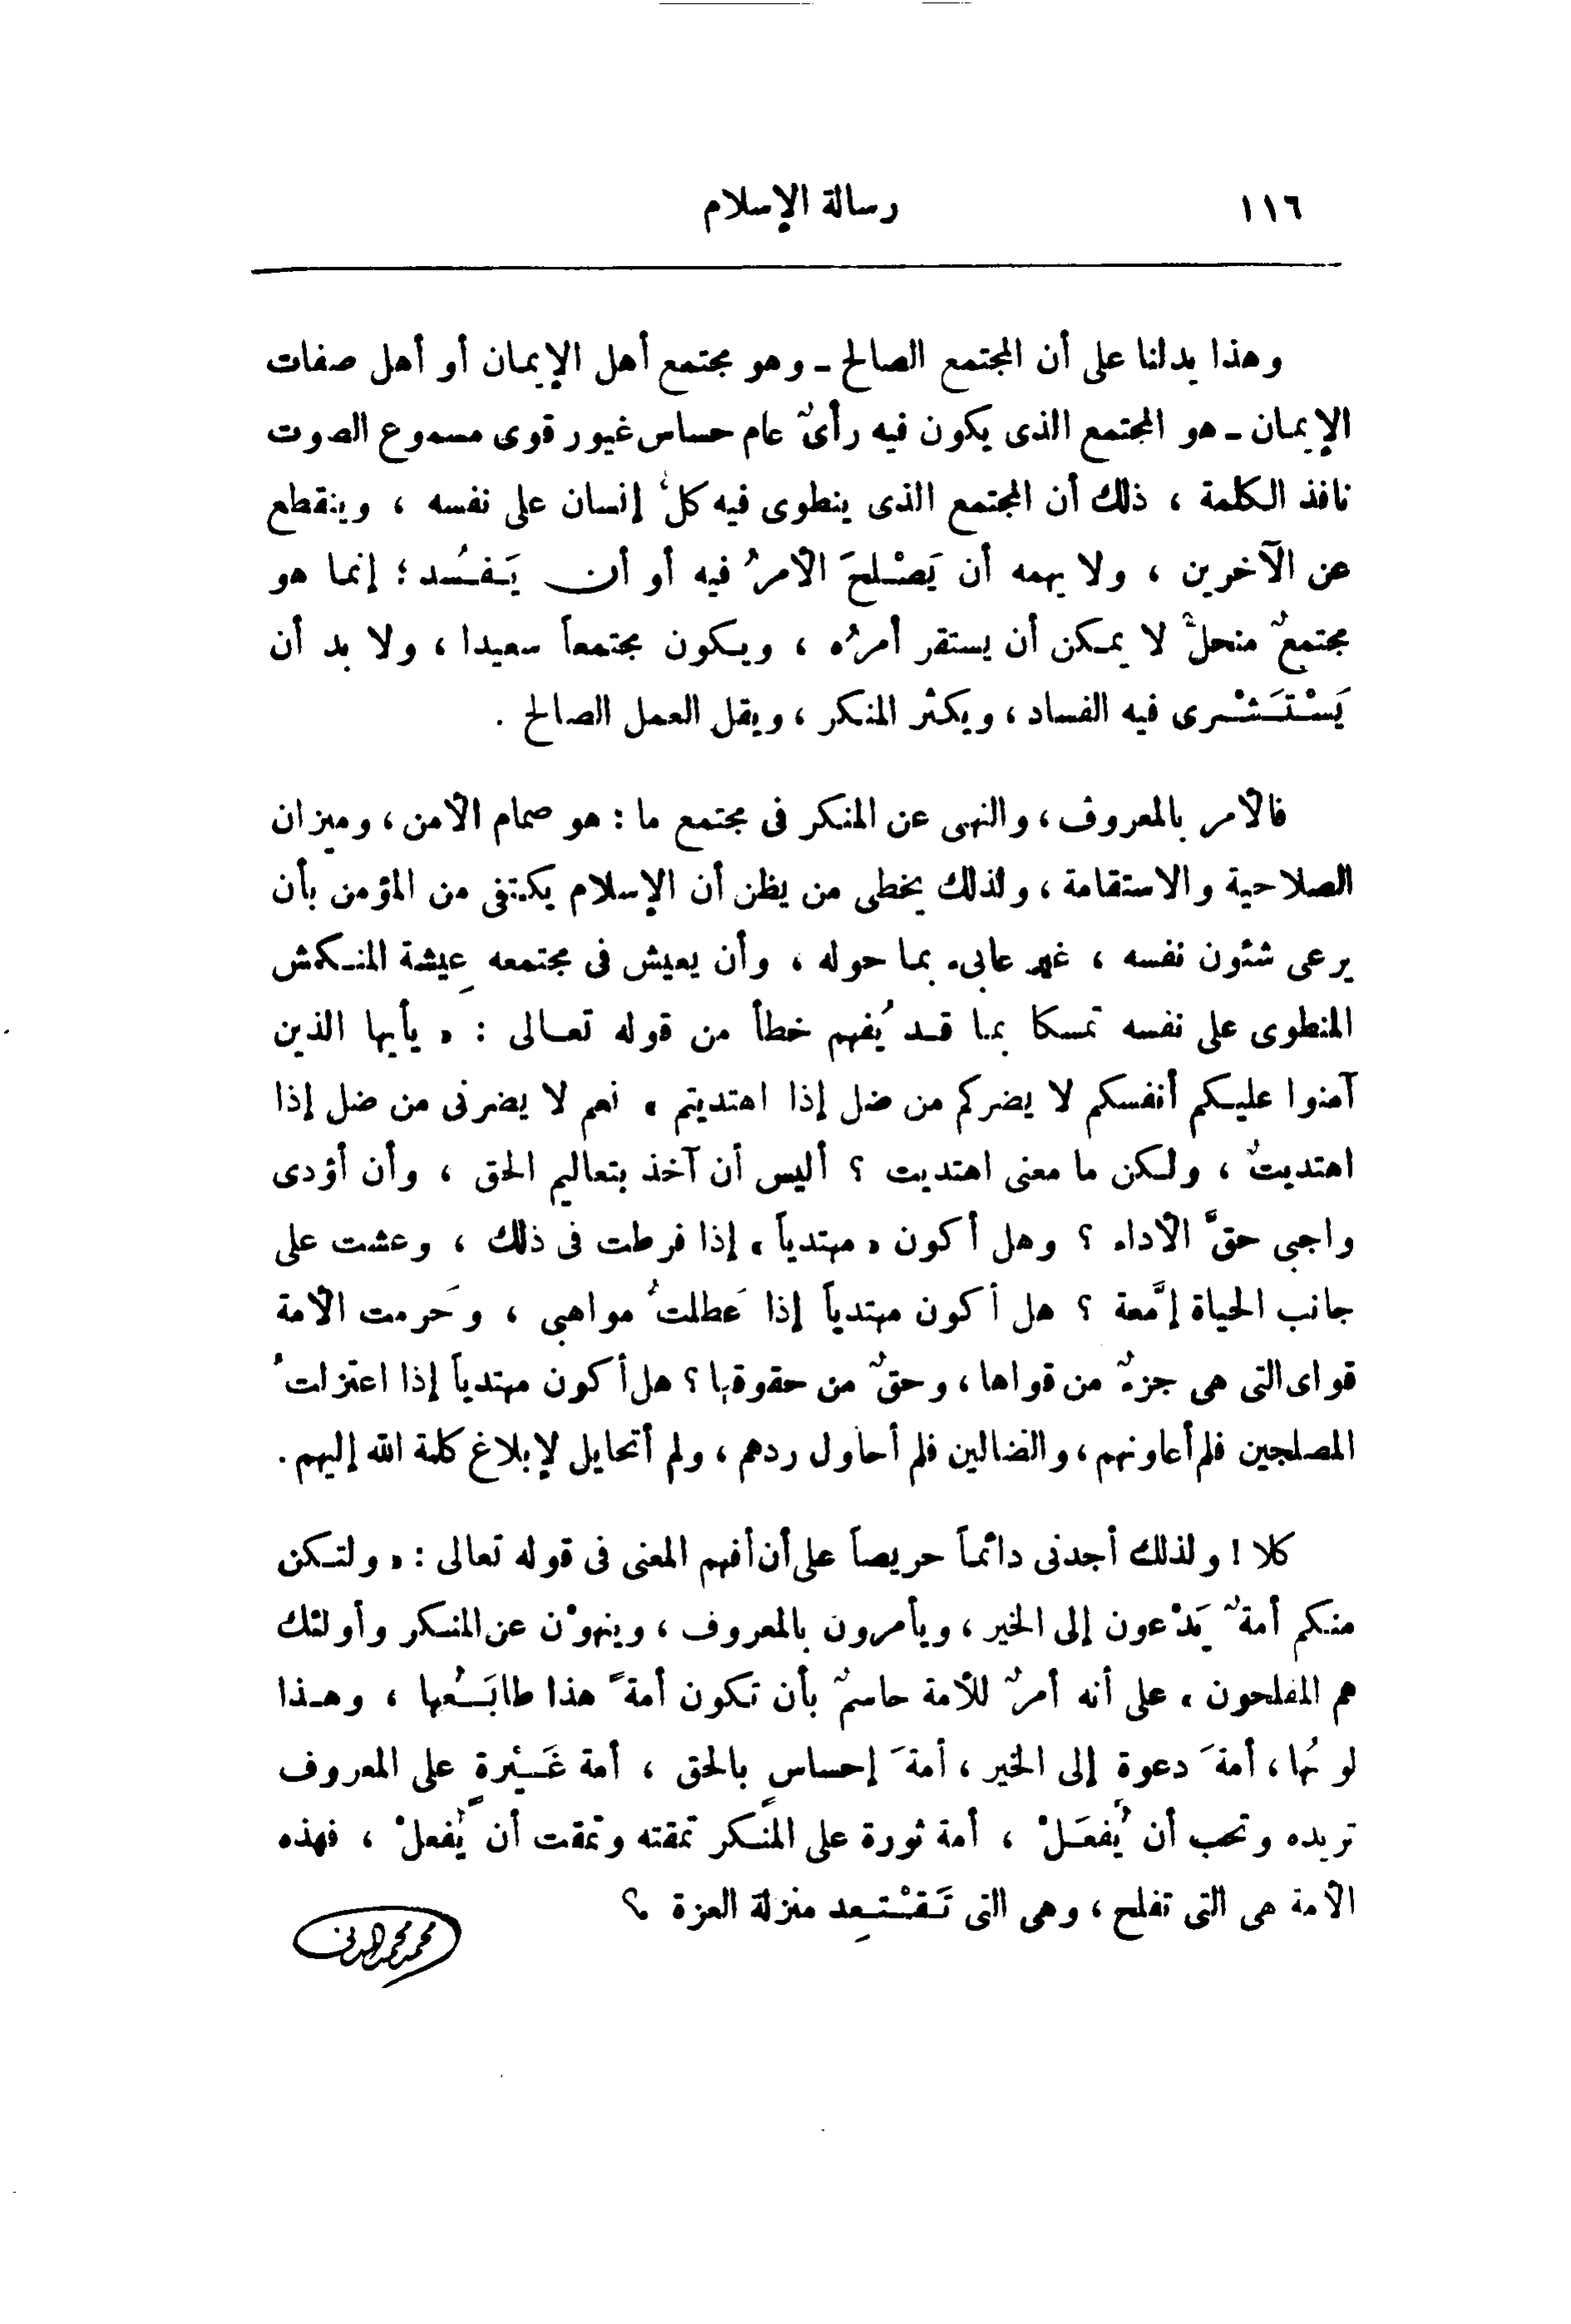 ١١٦
رسالة الإسلام
وهذا يدلنا على أن المجتمع الصالح ـ وهو مجتمع أهل الإيمان أو أهل صفات
الإيمان ـ هو المجتمع الذى يكون فيه رأىٌ عام حساس غيور قوى مسموع الصوت
نافذ الكلمة ، ذلك أن المجتمع الذى ينطوى فيه كلُّ إنسان على نفسه ، وينقطع
عن الآخرين ، ولا يهمه أن يَصْلحَ الأمرُ فيه أو أن يَفسُد ؛ إنما هو
مجتمعٌ منحلٌّ لا يمكن أن يستقر أمرُه ، ويكون مجتمعاً سعيدا ، ولا بد أن
يَسْتَشْرى فيه الفساد ، ويكثر المنكر ، ويقل العمل الصالح .
فالأمر بالمعروف ، والنهى عن المنكر فى مجتمع ما : هو صمام الأمن ، وميزان
الصلاحية والاستقامة ، ولذلك يخطى من يظن أن الإسلام يكتفى من المؤمن بأن
يرعى شئون نفسه ، غير عابىء بما حوله ، وأن يعيش فى مجتمعه عِيشة المنكمش
المنطوى على نفسه تمسكا بما قد يُفهم خطأ من قوله تعالى : « يأيها الذين
آمنوا عليكم أنفسكم لا يضركم من ضل إذا اهتديتم » نعم لا يضرنى من ضل إذا
اهتديتُ ، ولكن ما معنى اهتديت ؟ أليس أن آخذ بتعاليم الحق ، وأن أؤدى
واجبى حقَّ الأداء ؟ وهل أكون « مهتدياً » إذا فرطت فى ذلك ، وعشت على
جانب الحياة إمَّعة ؟ هل أكون مهتدياً إذا عَطلتُ مواهبى ، وحَرمت الأمة
قواى التى هى جزءٌ من قواها ، وحقٌ من حقوقها ؟ هل أكون مهتدياً إذا اعتزلتُ
المصلحين فلم أعاونهم ، والضالين فلم أحاول ردهم ، ولم أتحايل لإبلاغ كلمة الله إليهم .
كلا ! ولذلك أجدنى دائماً حريصاً على أن أفهم المعنى فى قوله تعالى : « ولتكن
منكم أمةٌ يَدْعون إلى الخير ، ويأمرون بالمعروف ، وينهوْن عن المنكر وأولئك
هم المفلحون » على أنه أمرٌ للأمة حاسمٌ بأن تكون أمةً هذا طابَعُها ، وهذا
لونُها ، أمةَ دعوة إلى الخير ، أمةَ إحساسٍ بالحق ، أمة غَيْرةٍ على المعروف
تريده وتحب أن يُفعَلْ ، أمة ثورة على المنكر تمقته وتمقت أن يُفعلْ ، فهذه
الأمة هى التى تفلح ، وهى التى تَقْتَعِد منزلة العزة ؟
محمد محمد المدنى